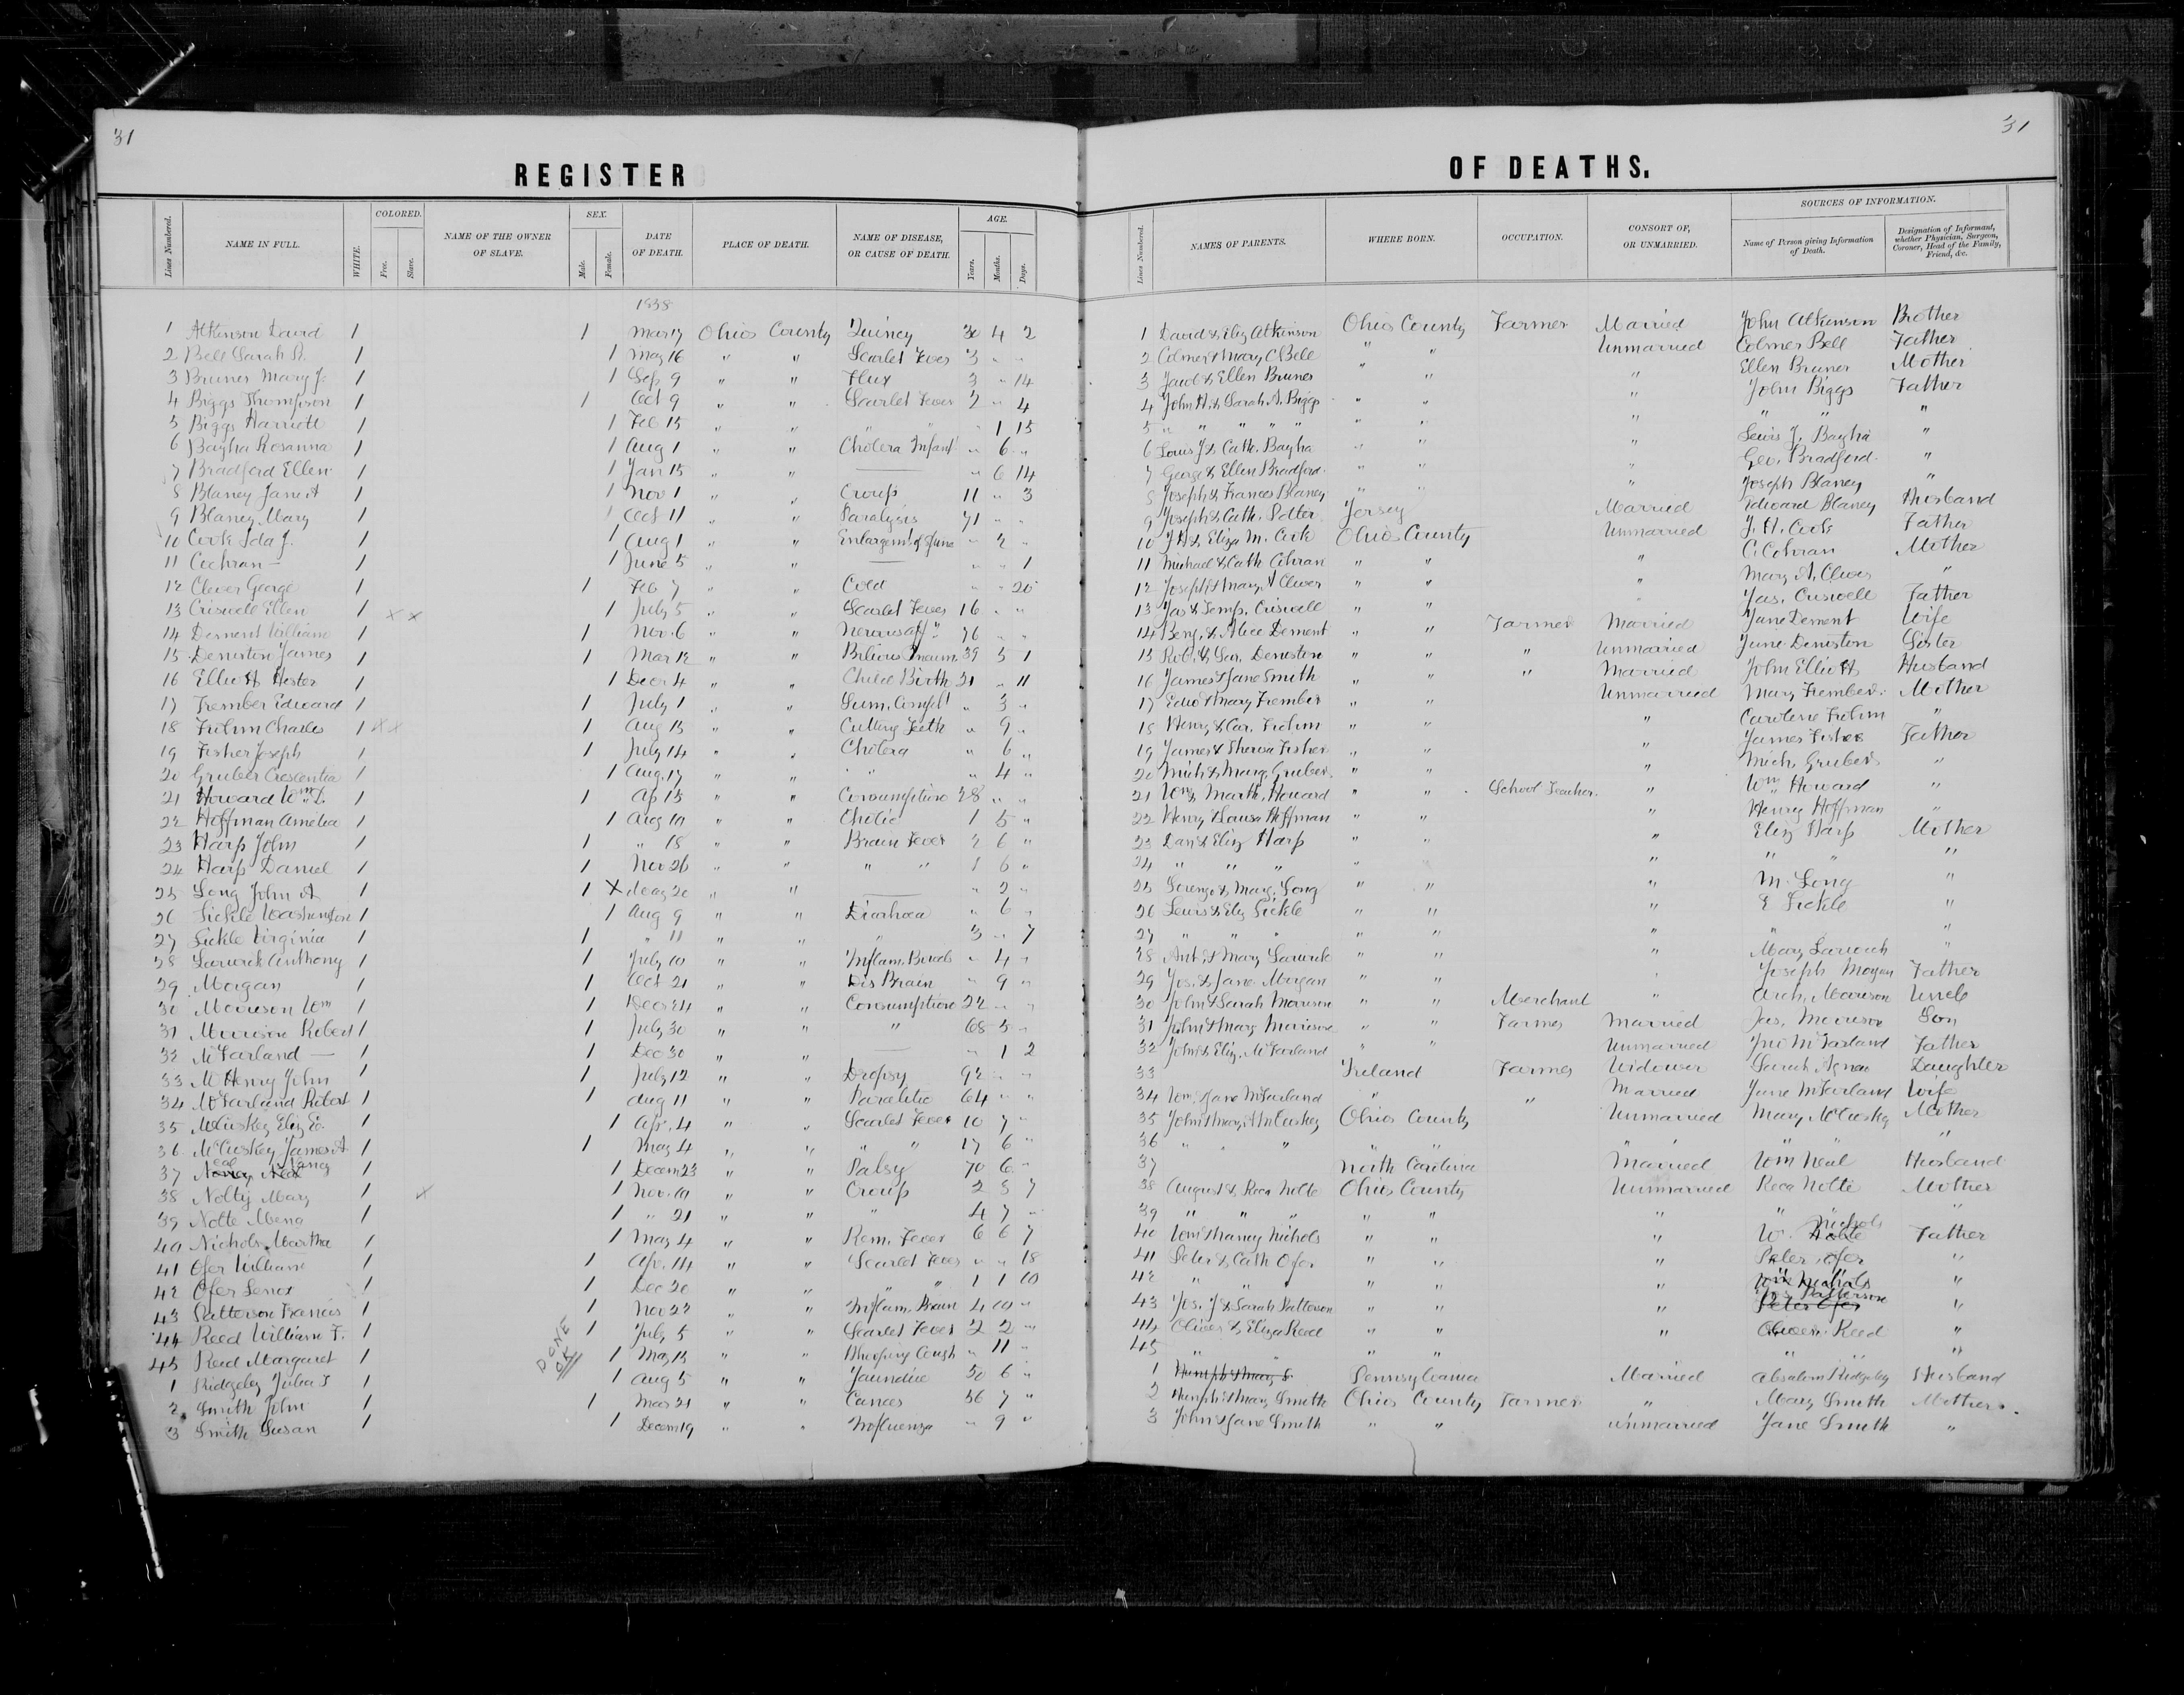 31
31
REGISTER OF DEATHS.
Lines Numbered. NAME IN FULL. WHITE. COLORED. Free. Slave. NAME OF THE OWNER OF SLAVE. SEX. Male. Female. DATE OF DEATH. PLACE OF DEATH. NAME OF DISEASE, OR CAUSE OF DEATH. AGE. Years. Months. Days.
Lines Numbered. NAMES OF PARENTS. WHERE BORN. OCCUPATION. CONSORT OF, OR UNMARRIED. SOURCES OF INFORMATION. Name of Person giving Information of Death. Designation of Informant, whether Physician, Surgeon, Coroner, Head of the Family, Friend, &c.
1858
1 Atkinson David 1 1 Mar 17 Ohio County Quincy 30 4 2
2 Bell Sarah R. 1 1 May 16 " " Scarlet Fever 3 " "
3 Bruner Mary J. 1 1 Sep 9 " " Flux 3 " 14
4 Biggs Thompson 1 1 Oct 9 " " Scarlet Fever 2 " 4
5 Biggs Harriett 1 1 Feb 15 " " " " " 1 15
6 Bayha Rosanna 1 1 Aug 1 " " Cholera Infant " 6 "
7 Bradford Ellen 1 1 Jan 15 " " — " 6 14
8 Blaney Jane A 1 1 Nov 1 " " Croup 11 " 3
9 Blaney Mary 1 1 Oct 11 " " Paralysis 71 " "
10 Cook Ida J. 1 1 Aug 1 " " Enlargem. of " 2 "
11 Cochran — 1 1 June 5 " " — " " 1
12 Clever George 1 1 Feb 7 " " Cold " " 20
13 Criswell Ellen 1 x x 1 July 5 " " Scarlet Fever 16 " "
14 Dement William 1 1 Nov. 6 " " Nervous 76 " "
15 Deniston James 1 1 Mar 12 " " Bilious Pneum. 39 5 1
16 Elliott Hester 1 1 Decr 4 " " Child Birth 31 " 11
17 Frember Edward 1 1 July 1 " " Sum. Complt " 3 "
18 Frohm Charles 1 x x 1 Aug 15 " " Cutting Teeth " 9 "
19 Fisher Joseph 1 1 July 14 " " Cholera " 6 "
20 Gruber Crescentia 1 1 Aug. 17 " " " " 4 "
21 Howard Wm D. 1 1 Ap 15 " " Consumption 28 " "
22 Hoffman Amelia 1 1 Aug 10 " " Cholic 1 5 "
23 Harp John 1 1 " 18 " " Brain Fever 2 6 "
24 Harp Daniel 1 1 Nov 26 " " " " 1 6 "
25 Long John A 1 1 X May 20 " " — " 2 "
26 Sickle Washington 1 1 Aug 9 " " Diarhoea " 6 "
27 Sickle Virginia 1 1 " 11 " " " 3 " 7
28 Sarwick Anthony 1 1 July 10 " " Inflam. Bowels " 4 "
29 Morgan 1 1 Oct 21 " " Dis Brain " 9 "
30 Morrison Wm 1 1 Decr 24 " " Consumption 22 " "
31 Morrison Robert 1 1 July 30 " " " 68 5 "
32 McFarland — 1 1 Dec 30 " " — " 1 2
33 McHenry John 1 1 July 12 " " Dropsy 92 " "
34 McFarland Robert 1 1 Aug 11 " " Paralitic 64 " "
35 McCuskey Eliz E. 1 1 Apr. 4 " " Scarlet Fever 10 7 "
36 McCuskey James A. 1 1 May 4 " " " " 17 6 "
37 Neal Nancy 1 1 Decem 23 " " Palsy 70 6 "
38 Nolty Mary 1 x 1 Nov. 10 " " Croup 2 5 7
39 Nolte Mena 1 1 " 21 " " " 4 7 "
40 Nichols Martha 1 1 May 4 " " Rem. Fever 6 6 7
41 Ofer William 1 1 Apr. 14 " " Scarlet Fever " " 18
42 Ofer Senox 1 1 Dec 20 " " " " 1 1 10
43 Patterson Francis 1 1 Nov 22 " " Inflam. Brain 4 10 "
44 Reed William F. 1 1 July 5 " " Scarlet Fever 2 2 "
45 Reed Margaret 1 1 May 15 " " Whooping Cough " 11 "
1 Ridgeley Julia I 1 1 Aug 5 " " Jaundice 50 6 "
2 Smith John 1 1 Mar 21 " " Cancer 36 7 "
3 Smith Susan 1 1 Decem 19 " " Influenza " 9 "
DONE OK
1 David & Eliz Atkinson Ohio County Farmer Married John Atkinson Brother
2 Colmer & Mary C Bell " " Unmarried Colmer Bell Father
3 Jacob & Ellen Bruner " " " Ellen Bruner Mother
4 John H. & Sarah A. Biggs " " " John Biggs Father
5 " " " " " " " " " " "
6 Louis J & Cath. Bayha " " " Lewis J. Bayha "
7 George & Ellen Bradford " " " Geo. Bradford "
8 Joseph & Frances Blaney " " " Joseph Blaney "
9 Joseph & Cath. Potter Jersey Married Edward Blaney Husband
10 J H & Eliza M. Cook Ohio County Unmarried J. H. Cook Father
11 Michael & Cath Cohran " " " C. Cohran Mother
12 Joseph & Mary A Clever " " " Mary A. Clever "
13 Jas & Temp. Criswell " " " Jas. Criswell Father
14 Benj. & Alice Dement " " Farmer Married Jane Dement Wife
15 Rob. & Deniston " " " Unmarried Jane Deniston Sister
16 James & Jane Smith " " " Married John Elliott Husband
17 Edwd & Mary Frember " " Unmarried Mary Frember Mother
18 Henry & Car. Frohm " " " Caroline Frohm "
19 James & Theresa Fisher " " " James Fisher Father
20 Mich & Marg. Gruber " " " Mich. Gruber "
21 Wm & Marth. Howard " " School Teacher " Wm Howard "
22 Henry & Louisa Hoffman " " " Henry Hoffman "
23 Danl & Eliz Harp " " " Eliz Harp Mother
24 " " " " " " " " "
25 Lorenzo & Marg. Long " " " M. Long "
26 Lewis & Eliz Sickle " " " E Sickle "
27 " " " " " " " "
28 Ant. & Mary Sarwick " " " Mary Sarwick "
29 Jos. & Jane Morgan " " " Joseph Morgan Father
30 John & Sarah Morrison " " Merchant " Arch. Morrison Uncle
31 John & Mary Morrison " " Farmer Married Jas. Morrison Son
32 John & Eliz. McFarland " " Unmarried Jno McFarland Father
33 Ireland Farmer Widower Sarah Agnew Daughter
34 Wm & Jane McFarland " " Married Jane McFarland Wife
35 John & Mary A McCuskey Ohio County Unmarried Mary McCuskey Mother
36 " " " " " " " " "
37 North Carolina Married Wm Neal Husband
38 August & Reca Nolte Ohio County Unmarried Reca Nolte Mother
39 " " " " " " " "
40 Wm & Nancy Nichols " " " W. Nichols Father
41 Peter & Cath Ofer " " " Peter Ofer "
42 " " " " " " "
43 Jos. J & Sarah Patterson " " " Jos. Patterson "
44 Oliver & Eliza Reed " " " Oliver Reed "
45 " " " " " "
1 Humph & Mary S. Pennsylvania Married Absalom Ridgeley Husband
2 Humph & Mary Smith Ohio County Farmer " Mary Smith Mother
3 John & Jane Smith " " Unmarried Jane Smith "